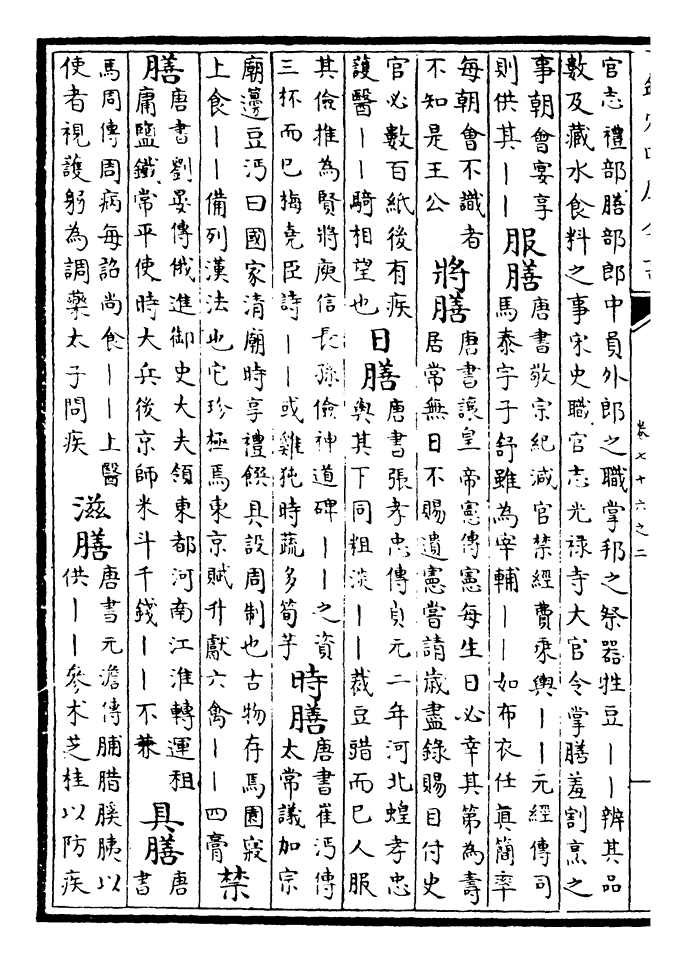 卷七十六之二
官志禮部膳部郎中員外郎之職掌邦之祭器牲豆丨丨辨其品
數及藏水食料之事宋史職官志光祿寺大官令掌膳羞割烹之
事朝會宴享
則供其丨丨
服膳
唐書敬宗紀減官禁經費乘輿丨丨元經傳司
馬泰字子舒雖為宰輔丨丨如布衣任眞簡率
每朝會不識者
不知是王公
將膳
唐書讓皇帝憲傳憲每生日必幸其第為壽
居常無日不賜遺憲嘗請歲盡錄賜目付史
官必數百紙後有疾
護醫丨丨騎相望也
日膳
唐書張孝忠傳貞元二年河北蝗孝忠
與其下同粗淡丨丨裁豆䜺而已人服
其儉推為賢將庾信長孫儉神道碑丨丨之資
三杯而已梅堯臣詩丨丨或雞㹠時蔬多筍芋
時膳
唐書崔沔傳
太常議加宗
廟籩豆沔曰國家清廟時享禮饌具設周制也古物存焉園寢
上食丨丨備列漢法也它珍極焉東京賦升獻六禽丨丨四膏
禁
膳
唐書劉晏傳俄進御史大夫領東都河南江淮轉運租
庸鹽鐵常平使時大兵後京師米斗千錢丨丨不兼
具膳
唐
書
馬周傳周病每詔尚食丨丨上醫
使者視護躬為調藥太子問疾
滋膳
唐書元澹傳脯腊膎胰以
供丨丨參朮芝桂以防疾